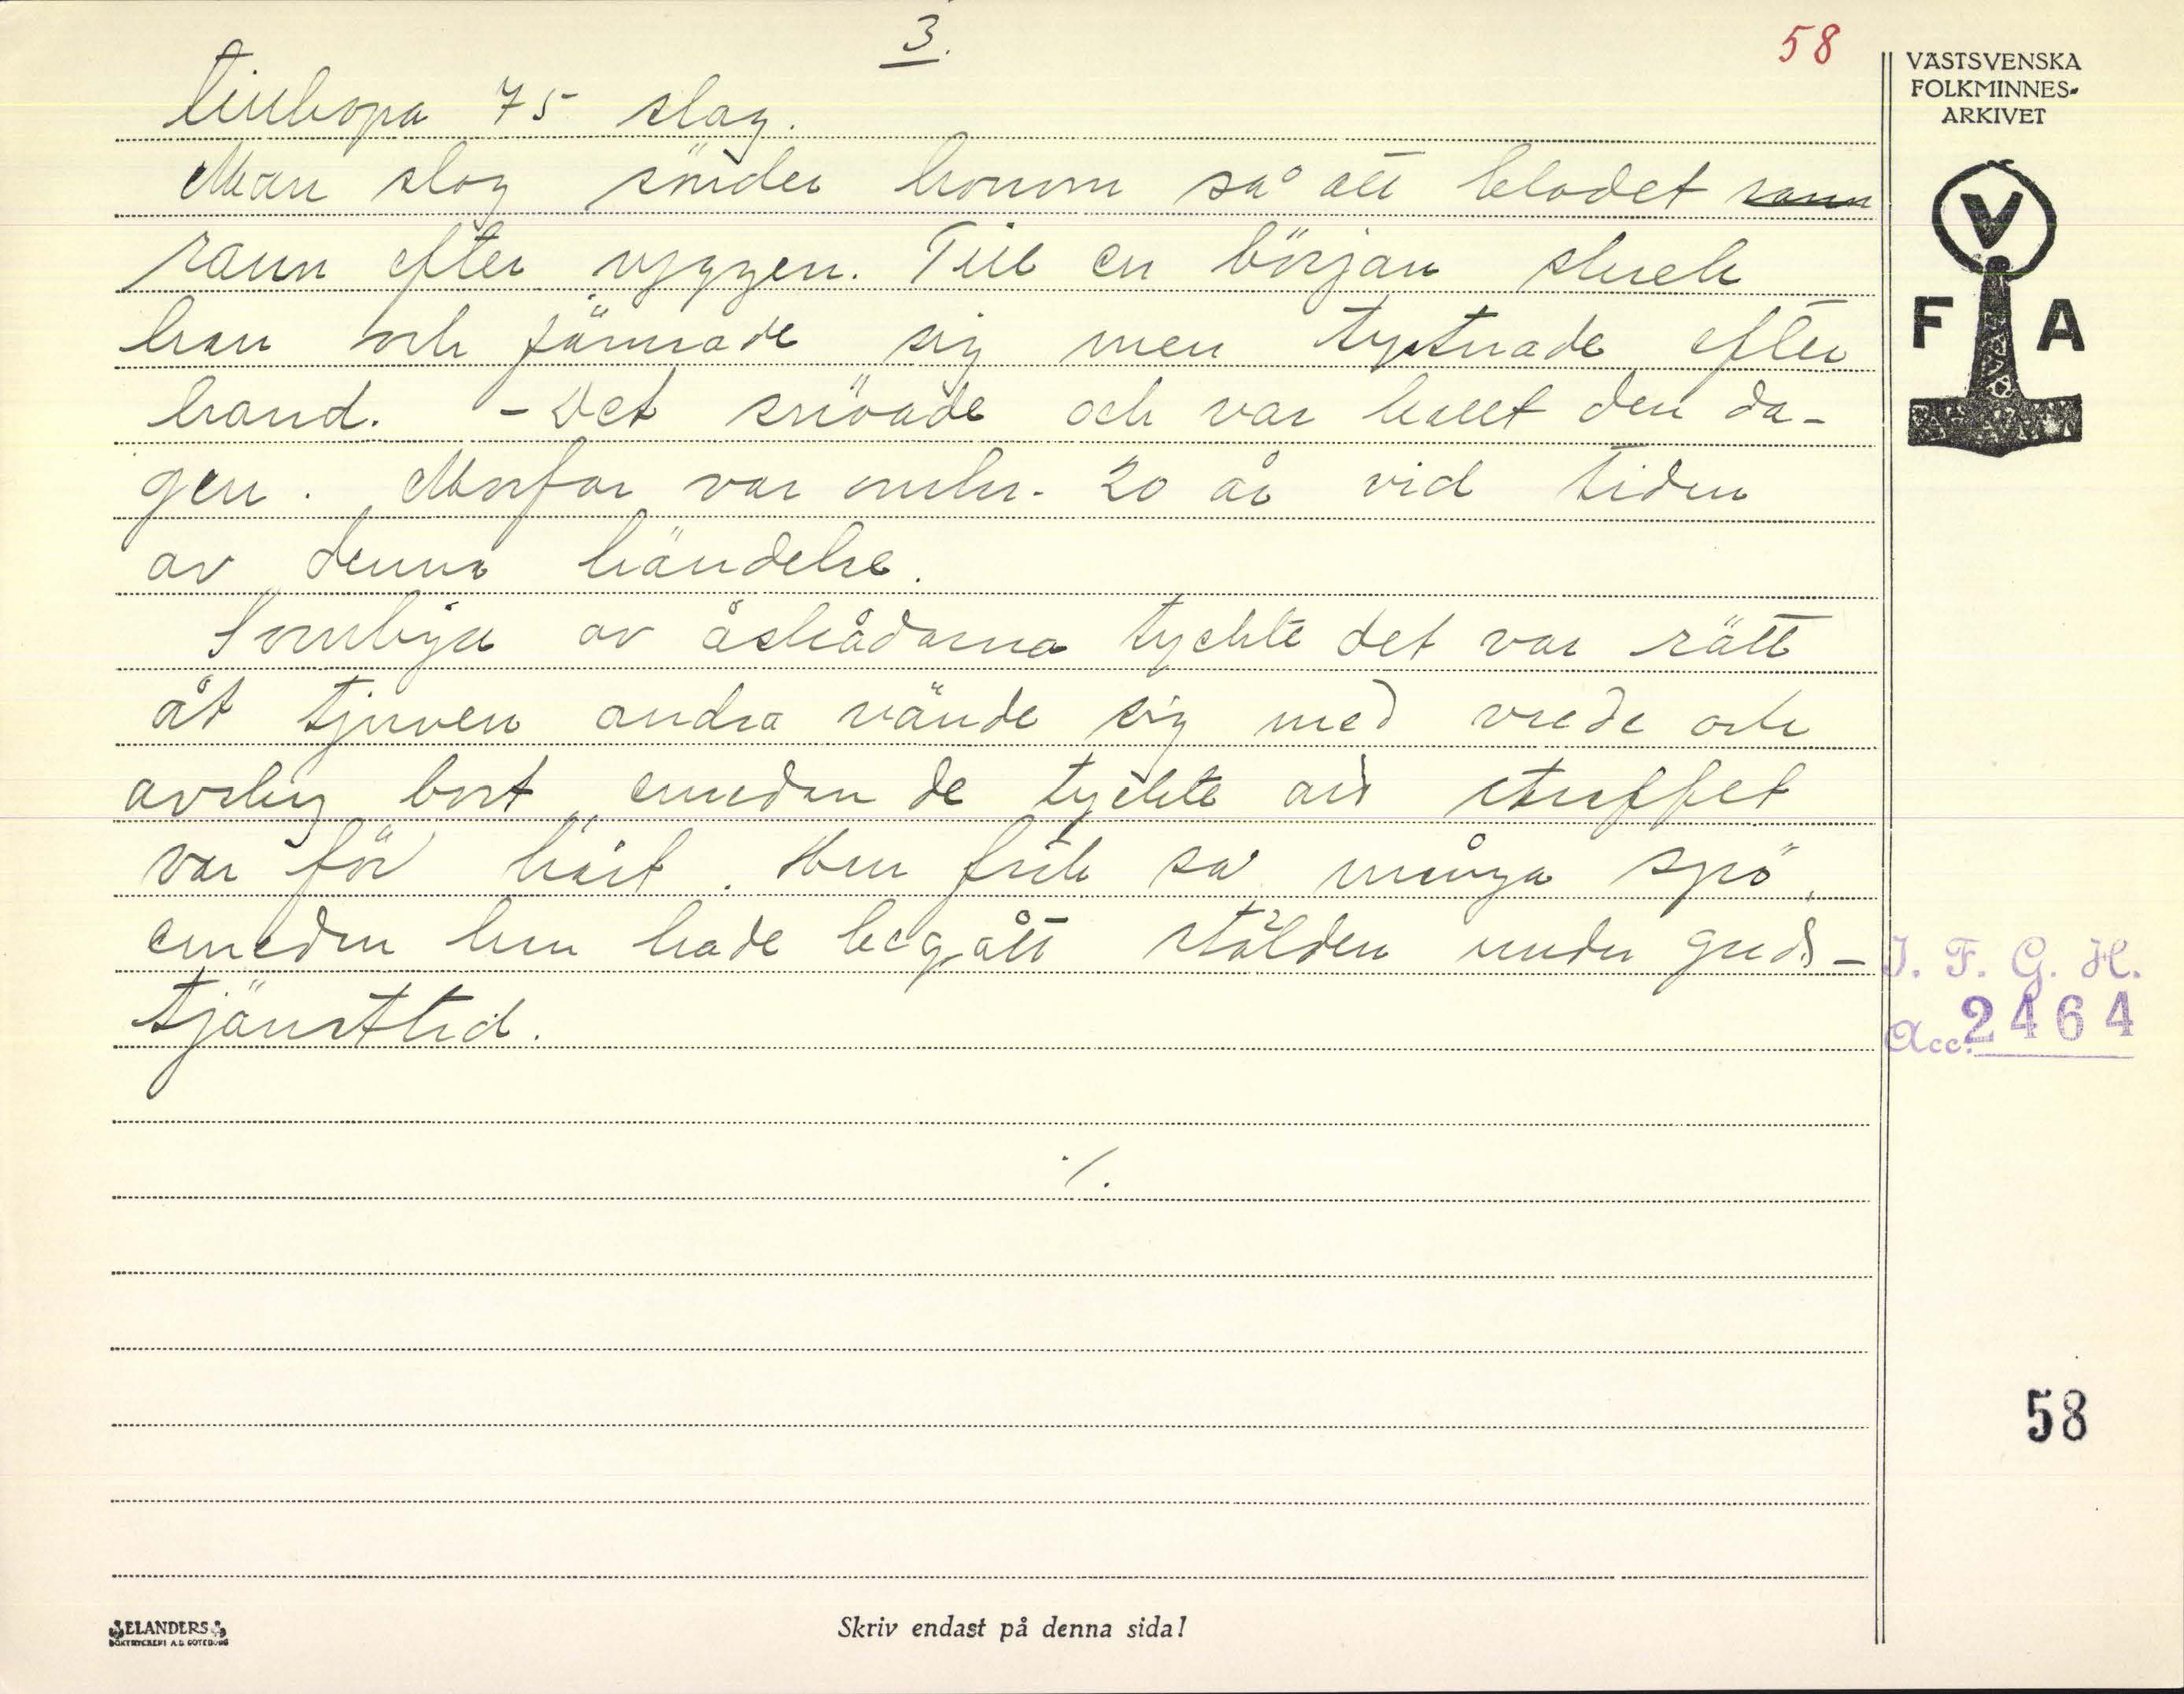 3.
58
tillhopa 75 slag.
Man slog sönder honom så att blodet rann
rann efter ryggen. Till en början skrek
han och jämrade sig men tystnade efter
hand. - Det snöade och var kallt den da-
gen. Morfar var omkr. 20 år vid tiden
av denna händelse.
Somliga av åskådarna tyckte det var rätt
åt tjuven andra vände sig med vrede och
avsky bort emedan de tyckte att straffet
var för hårt. Han fick så många spö,
emedan han hade begått stölden under guds-
tjänsttid.
./.
VÄSTSVENSKA
FOLKMINNES-
ARKIVET
V
F A
I. F. G. H.
Acc. 2464
58
ELANDERS
BOKTRYCKERI A.B. GÖTEBORG
Skriv endast på denna sida!